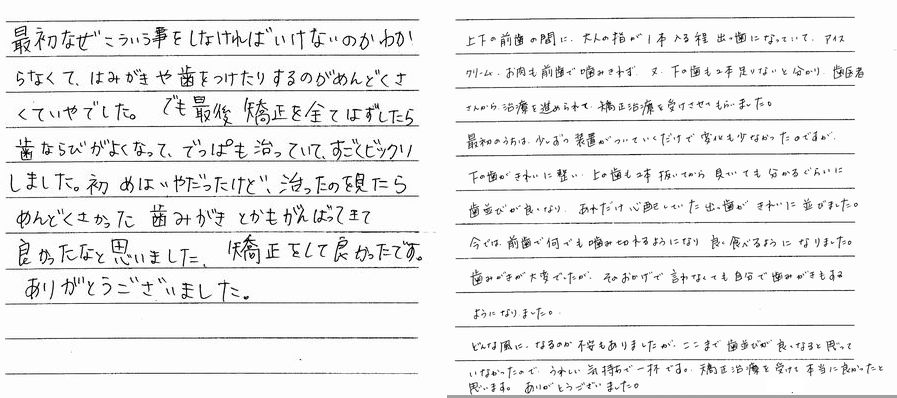 最初なぜこういう事をしなければいけないのかわか
らなくて、はみがきや歯をつけたりするのがめんどくさ
くていやでした。でも最後矯正を全てはずしたら
歯ならびがよくなって、でっぱも治っていて、すごくビックリ
しました。初めはいやだったけど、治ったのを見たら
めんどくさかった歯みがきとかもがんばってきて
良かったなと思いました、矯正をして良かったです。
ありがとうございました。
上下の前歯の間に、大人の指が1本入る程出っ歯になっていて、アイス
クリーム、お肉も前歯で噛みきれず、又、下の歯も2本足りないと分かり、歯医者
さんから治療を進められて、矯正治療を受けさせてもらいました。
最初のうちは、少しずつ装置がついていくだけで変化も少なかったのですが、
下の歯がきれいに整い、上の歯も2本抜いてから見ていても分かるぐらいに
歯並びが良くなり、あれだけ心配していた出っ歯がきれいに並びました。
今では、前歯で何でも噛み切れるようになり良く食べるようになりました。
歯みがきが大変でしたが、そのおかげで言わなくても自分で歯みがきもする
ようになりました。
どんな風に、なるのか不安もありましたが、ここまで歯並びが良くなると思って
いなかったので、うれしい気持ちで一杯です。矯正治療を受けて本当に良かったと
思います。ありがとうございました。